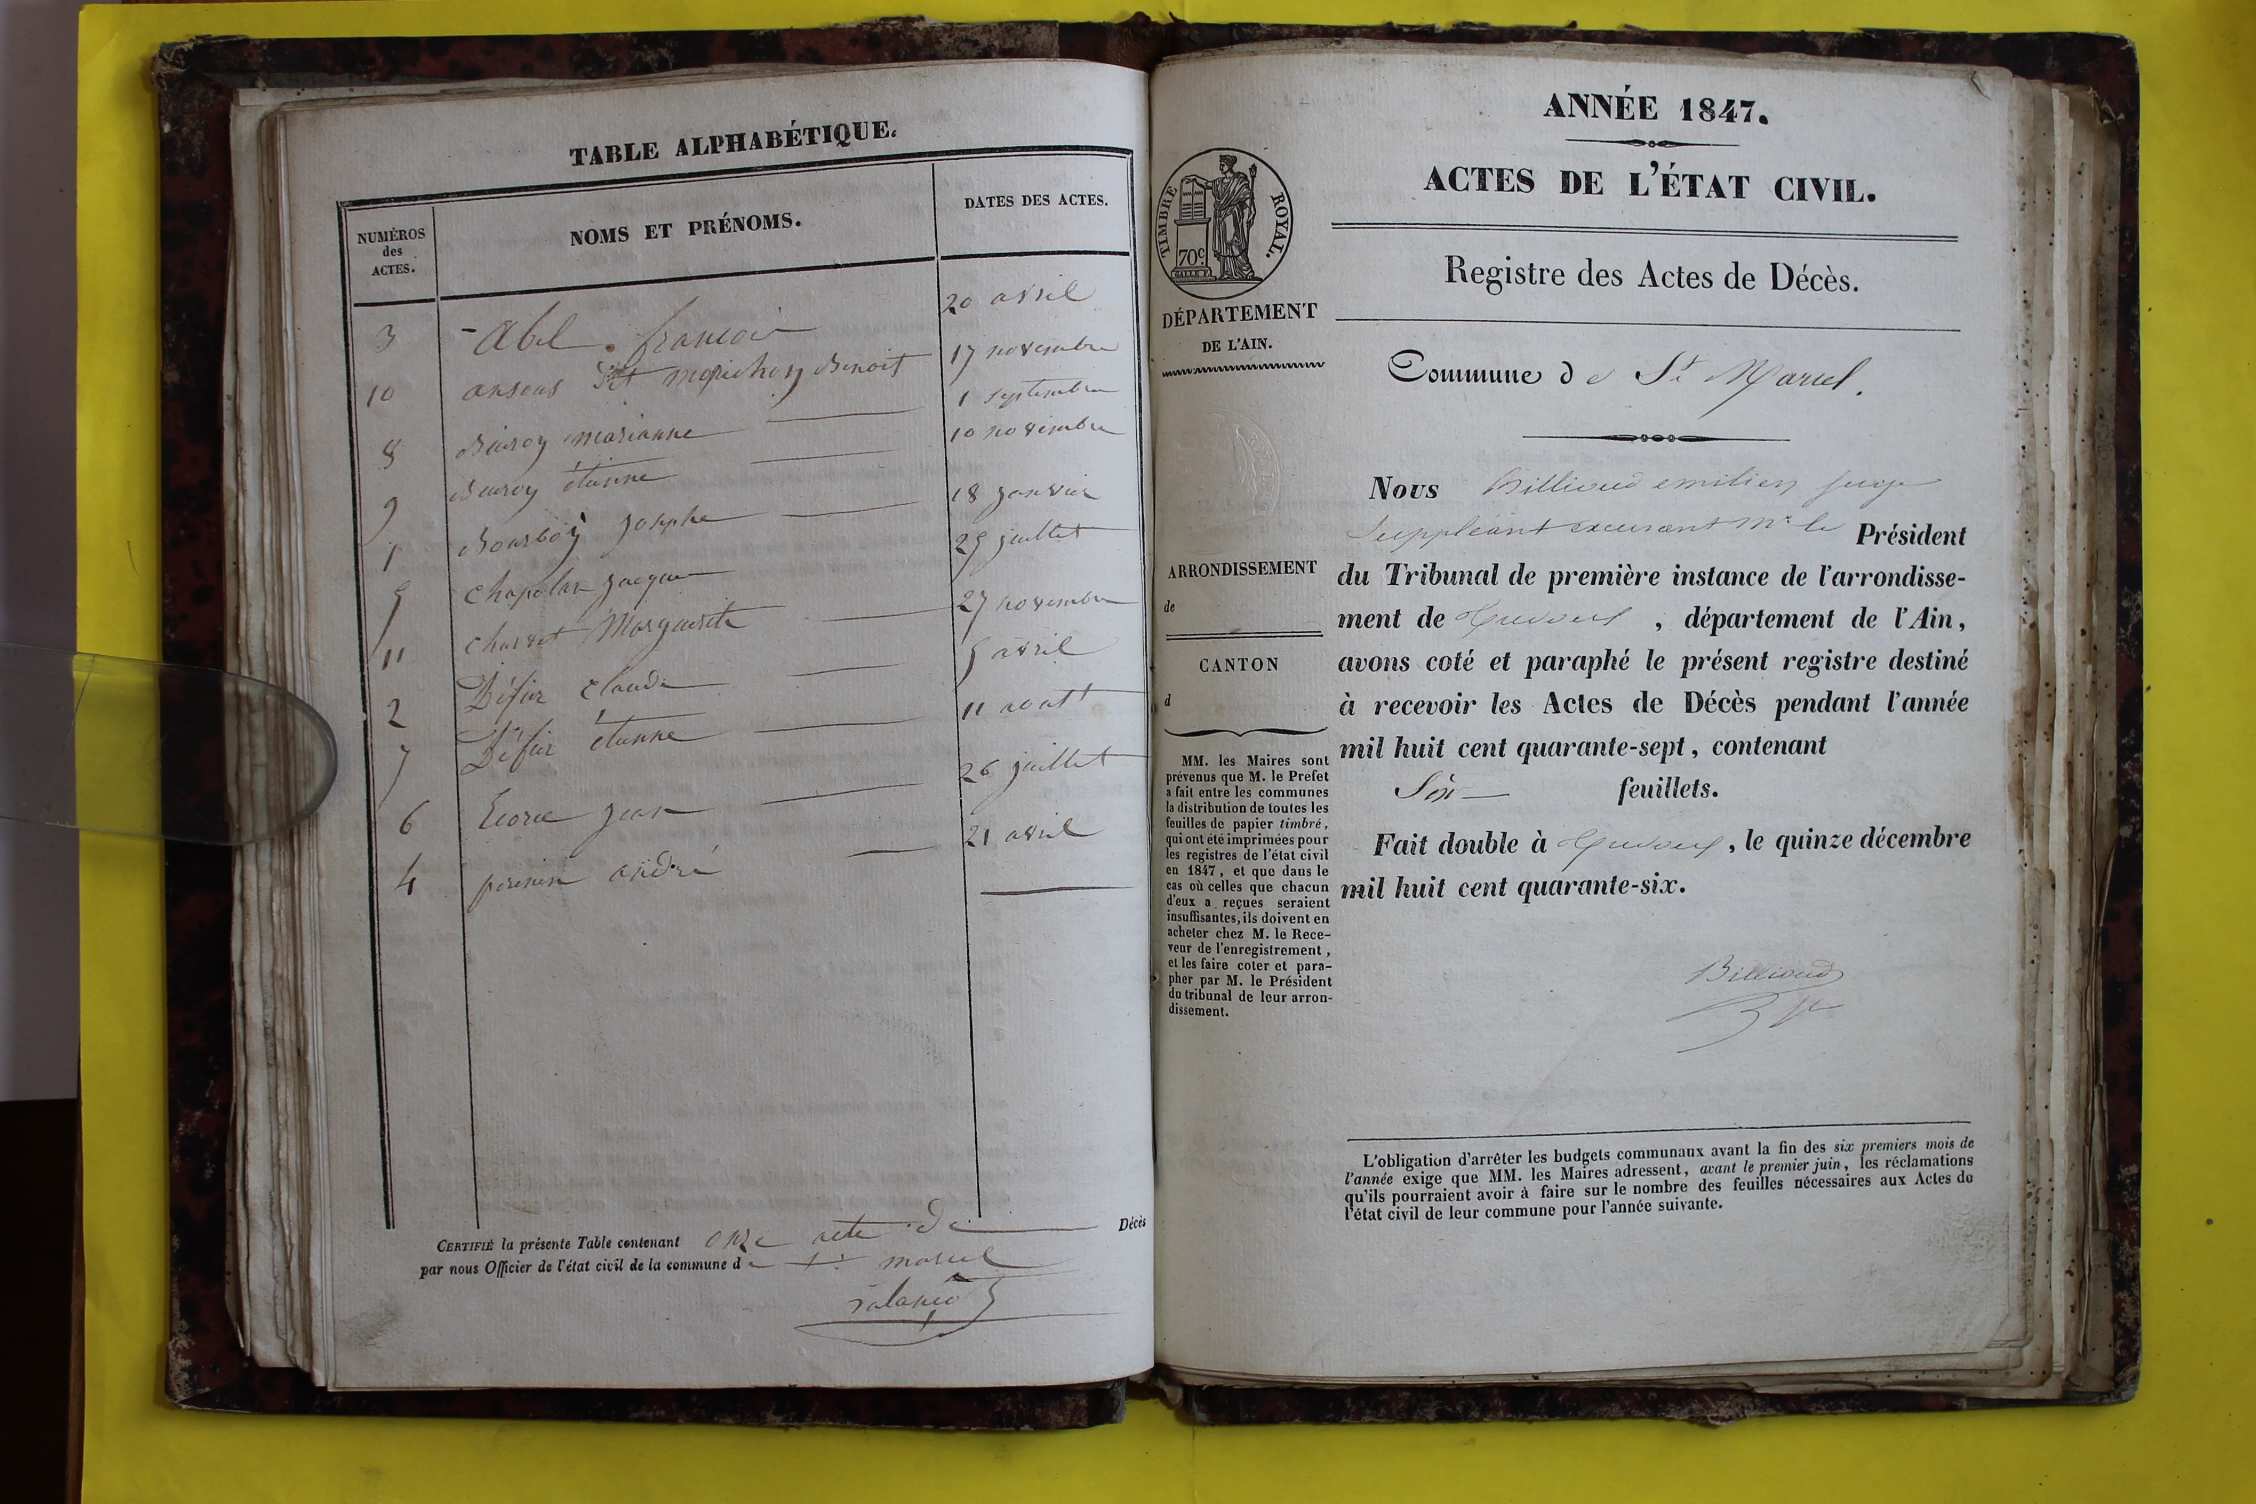 TABLE ALPHABÉTIQUE.
NUMÉROS des ACTES. NOMS ET PRÉNOMS. DATES DES ACTES.
3 Abel françois 20 avril
10 ansens Benoit 17 novembre
8 marianne 1 septembre
9 étienne 10 novembre
1 Josephe 18 janvier
5 chapelan jacques 25 juillet
11 charvet Marguerite 27 novembre
2 Défur claude 5 avril
7 Défur étienne 11 aoutt
6 jean 26 juillet
4 andré 21 avril
CERTIFIÉ la présente Table contenant onze acte de Décès
par nous Officier de l'état civil de la commune de St marcel
ANNÉE 1847.
ACTES DE L'ÉTAT CIVIL.
Registre des Actes de Décès.
TIMBRE ROYAL.
70c.
DÉPARTEMENT
DE L'AIN.
ARRONDISSEMENT
de
CANTON
d
MM. les Maires sont
prévenus que M. le Préfet
a fait entre les communes
la distribution de toutes les
feuilles de papier timbré,
qui ont été imprimées pour
les registres de l'état civil
en 1847, et que dans le
cas où celles que chacun
d'eux a reçues seraient
insuffisantes, ils doivent en
acheter chez M. le Rece-
veur de l'enregistrement,
et les faire coter et para-
pher par M. le Président
du tribunal de leur arron-
dissement.
Commune de St Marcel.
Nous Billioud emilien juge
Suppléant excusant Mr. le Président
du Tribunal de première instance de l'arrondisse-
ment de Trévoux, département de l'Ain,
avons coté et paraphé le présent registre destiné
à recevoir les Actes de Décès pendant l'année
mil huit cent quarante-sept, contenant
Six feuillets.
Fait double à Trévoux, le quinze décembre
mil huit cent quarante-six.
Billioud
L'obligation d'arrêter les budgets communaux avant la fin des six premiers mois de
l'année exige que MM. les Maires adressent, avant le premier juin, les réclamations
qu'ils pourraient avoir à faire sur le nombre des feuilles nécessaires aux Actes de
l'état civil de leur commune pour l'année suivante.